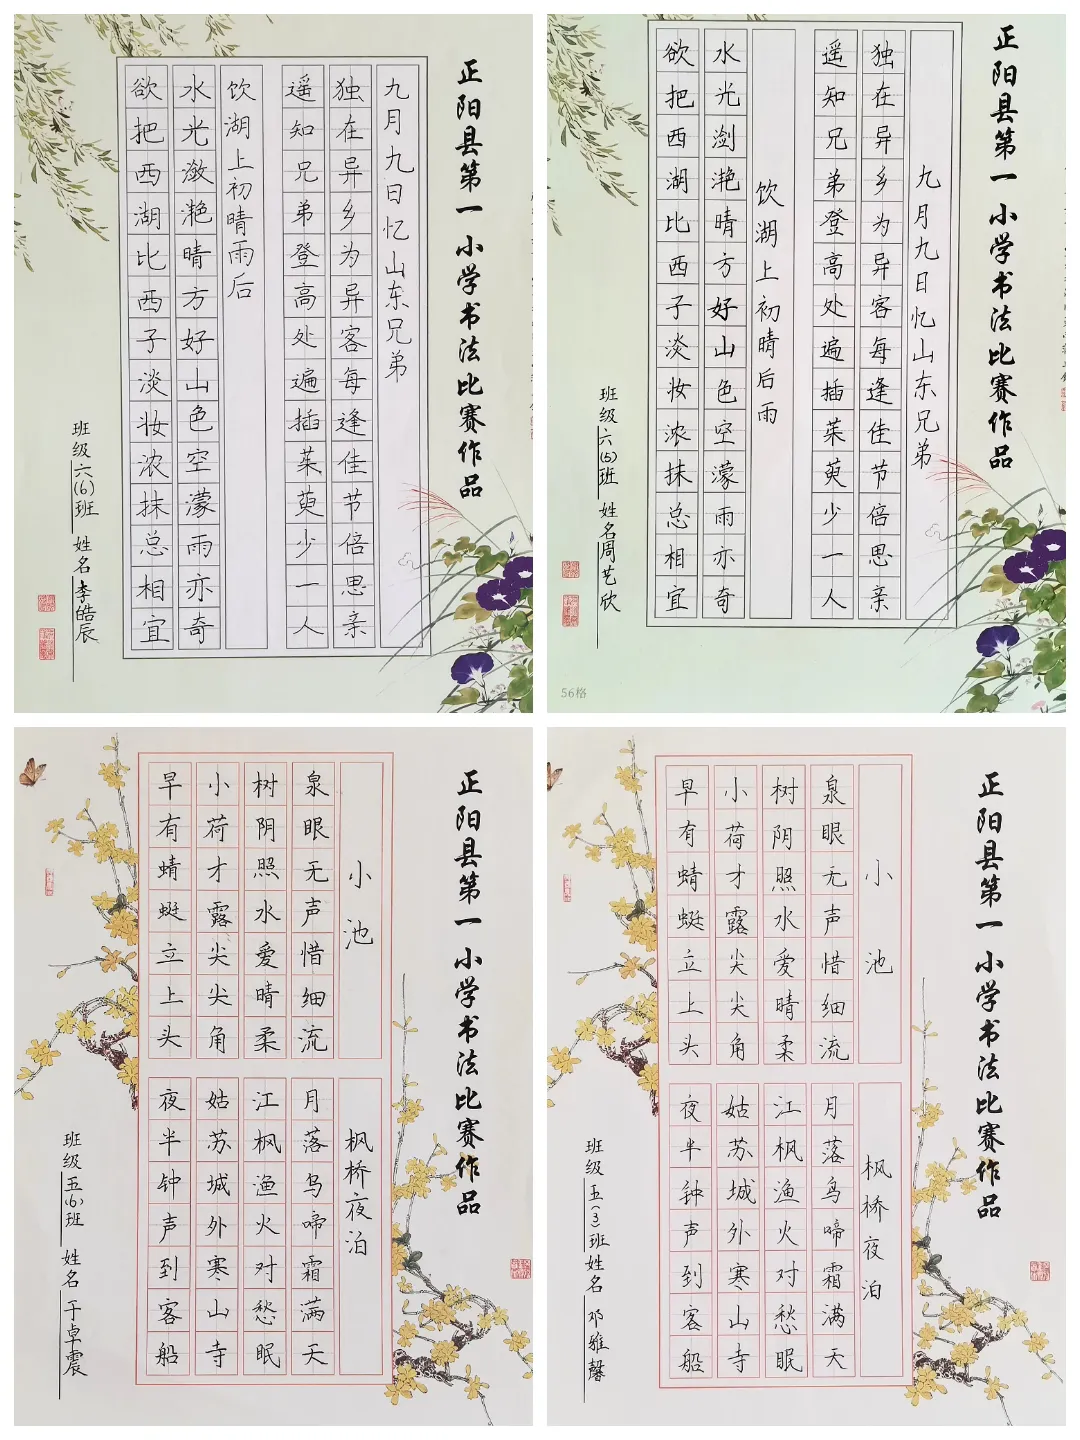 正阳县第一小学书法比赛作品
九月九日忆山东兄弟
独在异乡为异客每逢佳节倍思亲
遥知兄弟登高处遍插茱萸少一人
饮湖上初晴雨后
水光潋滟晴方好山色空濛雨亦奇
欲把西湖比西子淡妆浓抹总相宜
班级六(6)班 姓名李皓辰
正阳县第一小学书法比赛作品
九月九日忆山东兄弟
独在异乡为异客每逢佳节倍思亲
遥知兄弟登高处遍插茱萸少一人
饮湖上初晴后雨
水光潋滟晴方好山色空濛雨亦奇
欲把西湖比西子淡妆浓抹总相宜
班级六(5)班 姓名周艺欣
56格
正阳县第一小学书法比赛作品
小池
泉眼无声惜细流
树阴照水爱晴柔
小荷才露尖尖角
早有蜻蜓立上头
枫桥夜泊
月落鸟啼霜满天
江枫渔火对愁眠
姑苏城外寒山寺
夜半钟声到客船
班级五(6)班 姓名于卓震
正阳县第一小学书法比赛作品
小池
泉眼无声惜细流
树阴照水爱晴柔
小荷才露尖尖角
早有蜻蜓立上头
枫桥夜泊
月落鸟啼霜满天
江枫渔火对愁眠
姑苏城外寒山寺
夜半钟声到客船
班级五(3)班 姓名邓雅馨